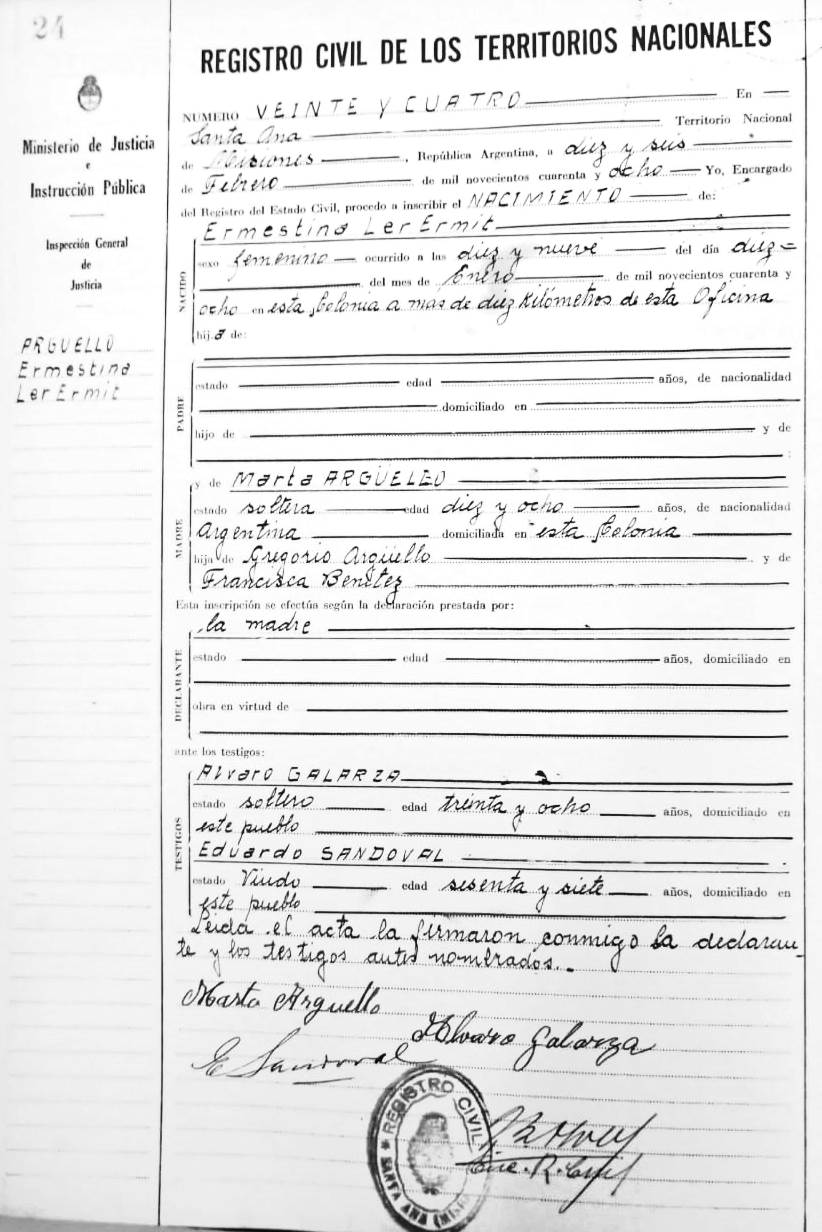 24
REGISTRO CIVIL DE LOS TERRITORIOS NACIONALES
Ministerio de Justicia
e
Instrucción Pública
Inspección General
de
Justicia
ARGUELLO
Ermestina
LerErmit
NUMERO VEINTE Y CUATRO En
Santa Ana Territorio Nacional
de Misiones, República Argentina, a diez y seis
de Febrero de mil novecientos cuarenta y ocho Yo, Encargado
del Registro del Estado Civil, procedo a inscribir el NACIMIENTO de:
NACIDO
Ermestina LerErmit
sexo femenino ocurrido a las diez y nueve del día diez=
del mes de Enero de mil novecientos cuarenta y
ocho en esta Colonia a mas de diez Kilómetros de esta Oficina
hija de:
PADRE
estado edad años, de nacionalidad
domiciliado en
hijo de y de
;
MADRE
y de Marta ARGÜELLO
estado soltera edad diez y ocho años, de nacionalidad
Argentina domiciliada en esta Colonia
hija de Gregorio Argüello y de
Francisca Benitez
Esta inscripción se efectúa según la declaración prestada por:
DECLARANTE
la madre
estado edad años, domiciliado en
obra en virtud de
ante los testigos:
TESTIGOS
Alvaro GALARZA
estado soltero edad treinta y ocho años, domiciliado en
este pueblo
Eduardo SANDOVAL
estado Viudo edad sesenta y siete años, domiciliado en
este pueblo
Leida el acta la firmaron conmigo la declaran-
te y los testigos antes nombrados.-
Marta Arguello
Alvaro Galarza
E Sandoval
REGISTRO CIVIL
SANTA ANA
Enc. R. Civil